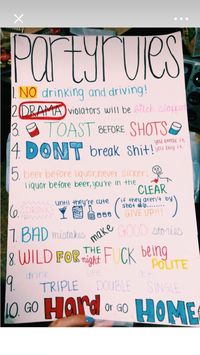 partyrules
1. NO drinking and driving!
2. DRAMA violators will be bitch slapped
3. TOAST BEFORE SHOTS
4. DONT break shit! you break it, you buy it.
5. beer before liquor, never sicker,
liquor before beer, you're in the CLEAR
6. until they're cute (if they aren't by
shot GIVE UP!!!)
7. BAD mistakes make GOOD stories
8. WILD FOR THE night FUCK being POLITE
9. drink
TRIPLE DOUBLE SINGLE
10. GO Hard or GO HOME